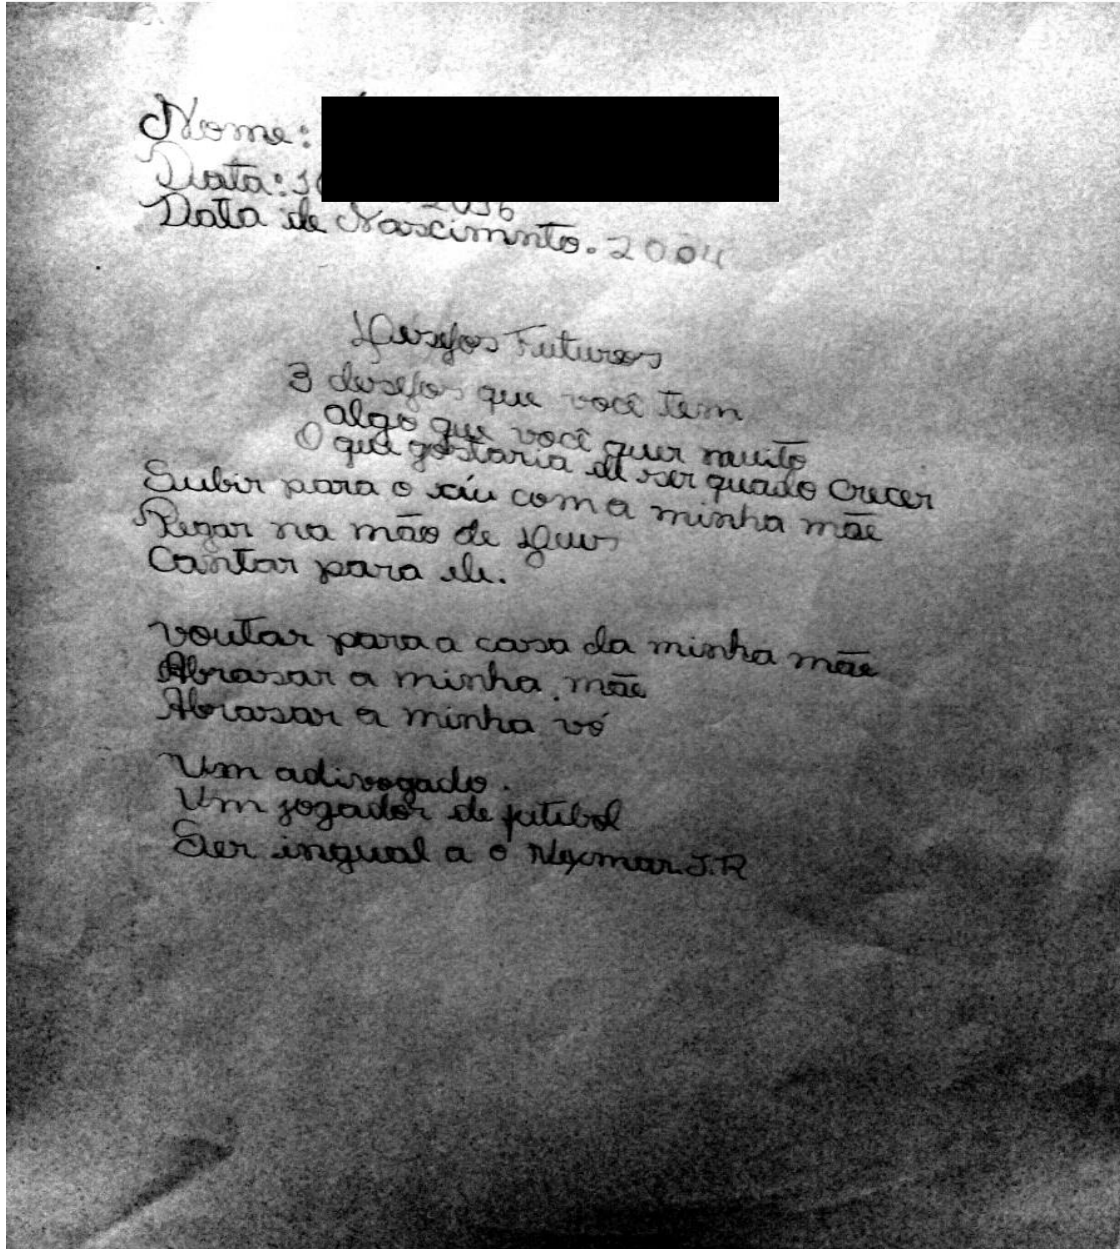 Nome:
Data:
Data de Nascimnto. 2004
Desejos Futuros
3 desejos que você tem
algo que você quer muito
O que gostaria de ser quado crecer
Subir para o séu com a minha mãe
Pegar na mão de Deus
Cantar para ele.
voutar para a casa da minha mãe
Abrasar a minha mãe
Abrasar a minha vó
Um adivogado.
Um jogador de futibol
Ser ingual a o Neymar J.R